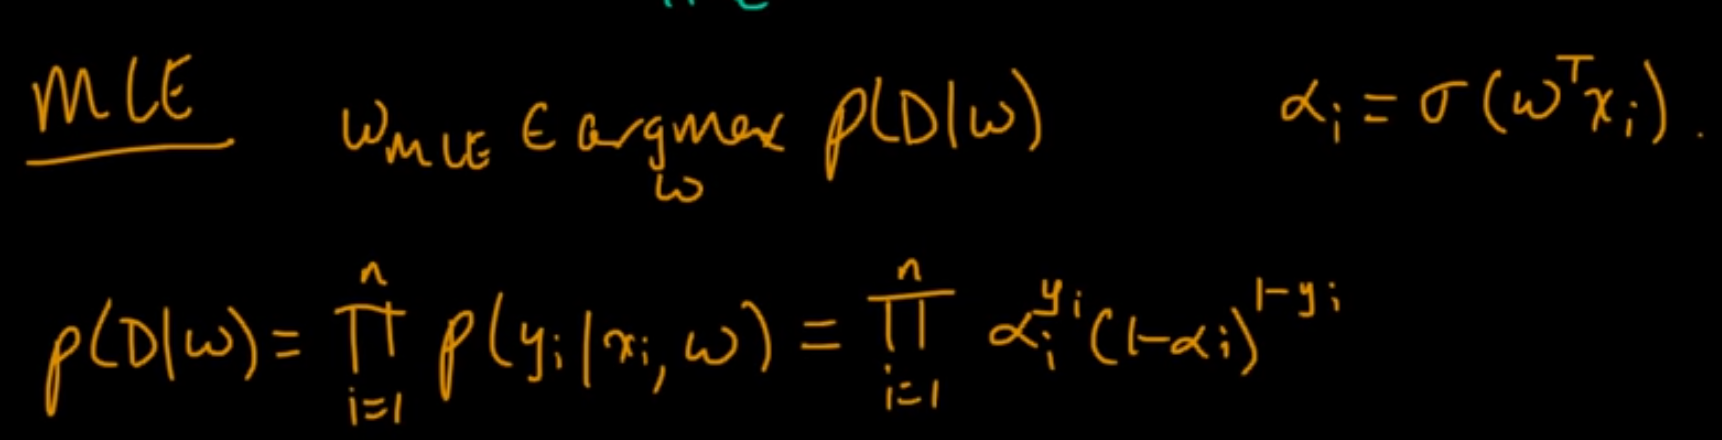 MLE w_MLE ∈ argmax_w p(D|w) α_i = σ(w^T x_i).
p(D|w) = ∏_{i=1}^{n} p(y_i|x_i, w) = ∏_{i=1}^{n} α_i^{y_i} (1-α_i)^{1-y_i}